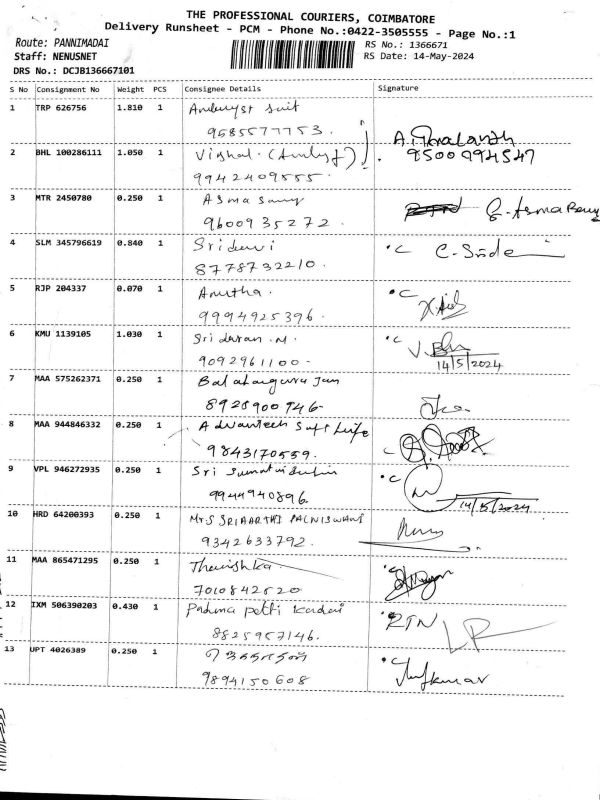 THE PROFESSIONAL COURIERS, COIMBATORE
Delivery Runsheet - PCM - Phone No.:0422-3505555 - Page No.:1
Route: PANNIMADAI
RS No.: 1366671
Staff: NENUSNET
RS Date: 14-May-2024
DRS No.: DCJB136667101
S No Consignment No Weight PCS Consignee Details Signature
1 TRP 626756 1.810 1 suit
9585577753.
2 BHL 100286111 1.050 1 Vishal.
9500994547
9942409555.
3 MTR 2450780 0.250 1 Asma
9600935272.
4 SLM 345796619 0.840 1 Sridevi
8778732210.
5 RJP 204337 0.070 1 Anutha.
9994925396.
6 KMU 1139105 1.030 1 Sridaran.M.
9092961100-
14/5/2024
7 MAA 575262371 0.250 1
8925900746-
8 MAA 944846332 0.250 1 Advantech Soft Life
9843170559.
9 VPL 946272935 0.250 1 Sri
9944940896.
14/5/2024
10 HRD 64200393 0.250 1 Mrs SRIAARTHI PALNISWAMI
9342633792.
11 MAA 865471295 0.250 1 Thanishka
7010842520
12 IXM 506390203 0.430 1 Padma petti kadai RTN
8825957146.
13 UPT 4026389 0.250 1
9894150608